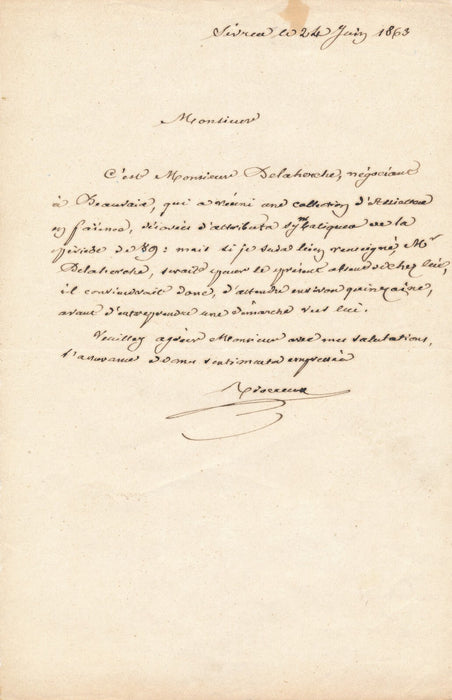 Sèvres le 24 Juin 1863
Monsieur
C'est Monsieur Delaherche, négociant
à Beauvais, qui a réuni une collection d'Assiettes
en faïence, décorées d'attributs symboliques de la
période de 89: mais si je suis bien renseigné, Mr
Delaherche, serait pour le présent absent de chez lui,
il conviendrait donc, d'attendre environ quinzaine,
avant d'entreprendre une démarche vers lui.
Veuillez agréer Monsieur avec mes salutations,
l'assurance de mes sentiments empressés
Riocreux